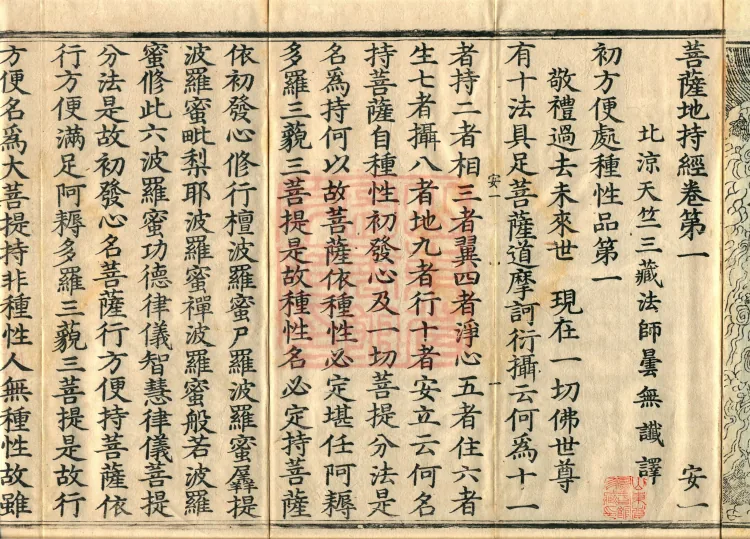 菩薩地持經卷第一 安一
北涼天竺三藏法師曇無讖譯
初方便處種性品第一
敬禮過去未來世 現在一切佛世尊
有十法具足菩薩道摩訶衍攝云何爲十一
安一 一
者持二者相三者翼四者淨心五者住六者
生七者攝八者地九者行十者安立云何名
持菩薩自種性初發心及一切菩提分法是
名爲持何以故菩薩依種性必定堪任阿耨
多羅三藐三菩提是故種性名必定持菩薩
依初發心修行檀波羅蜜尸羅波羅蜜羼提
波羅蜜毗梨耶波羅蜜禪波羅蜜般若波羅
蜜修此六波羅蜜功德律儀智慧律儀菩提
分法是故初發心名菩薩行方便持菩薩依
行方便滿足阿耨多羅三藐三菩提是故行
方便名爲大菩提持非種性人無種性故雖